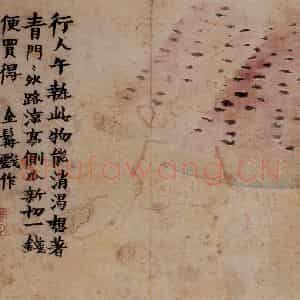 行人午熱此物能消渴想著
青門〻外路涼亭側瓜新切一錢
便買得 金 戲作
shufawang.CN